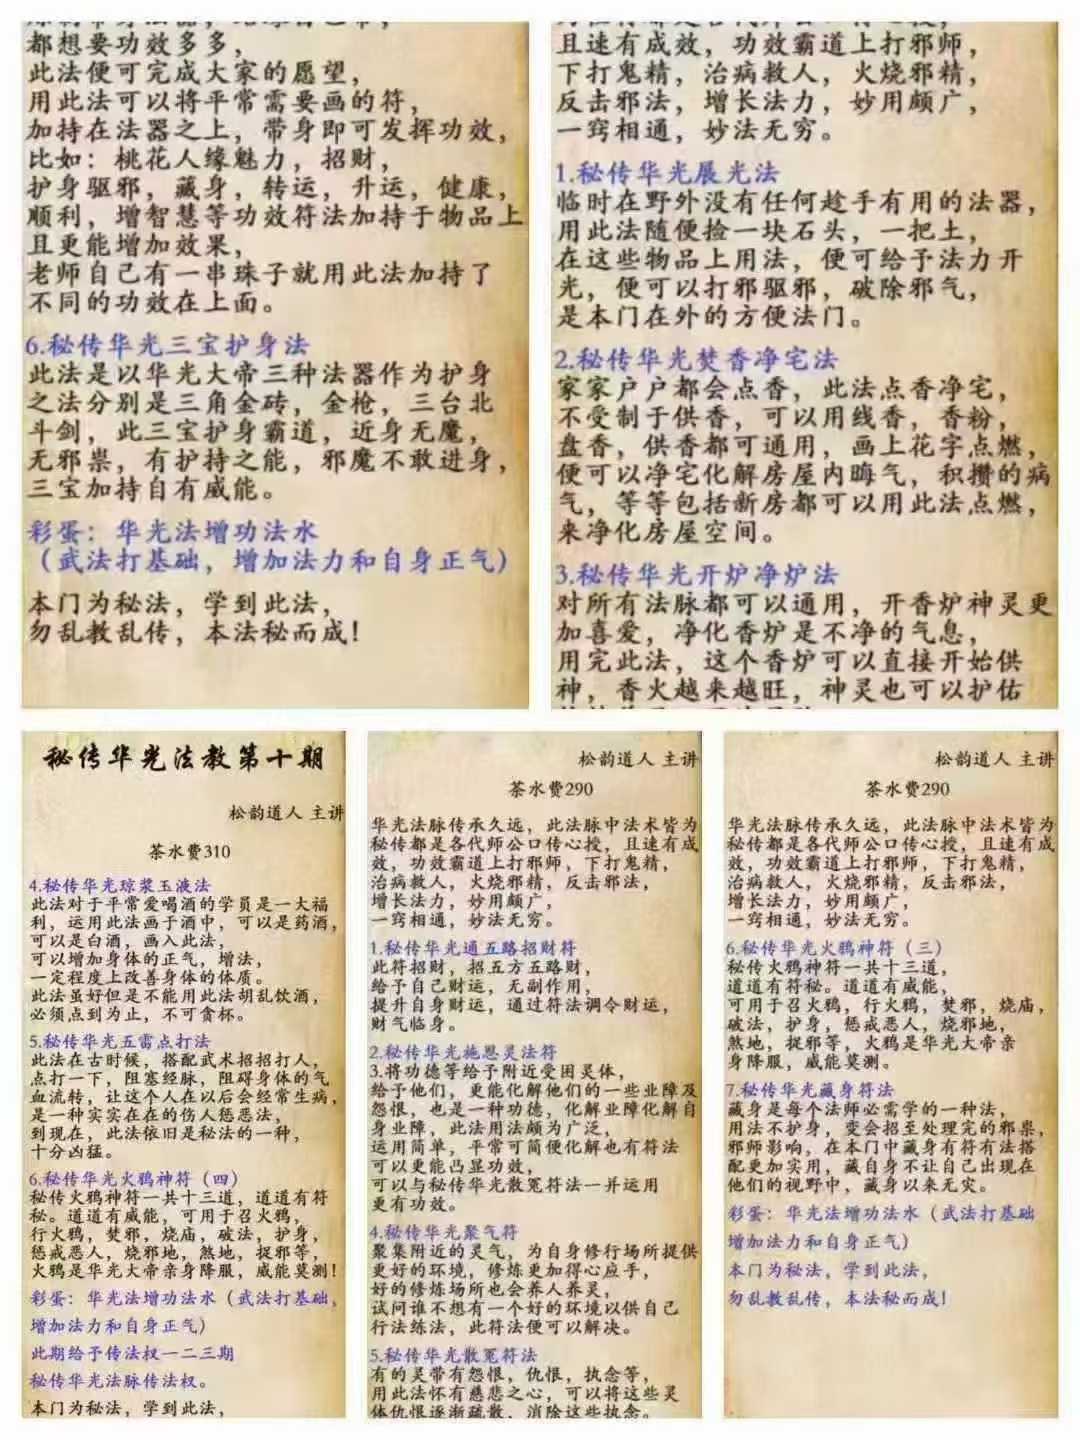 都想要功效多多，
此法便可完成大家的愿望，
用此法可以将平常需要画的符，
加持在法器之上，带身即可发挥功效，
比如：桃花人缘魅力，招财，
护身驱邪，藏身，转运，升运，健康，
顺利，增智慧等功效符法加持于物品上
且更能增加效果，
老师自己有一串珠子就用此法加持了
不同的功效在上面。
6.秘传华光三宝护身法
此法是以华光大帝三种法器作为护身
之法分别是三角金砖，金枪，三台北
斗剑，此三宝护身霸道，近身无魔，
无邪祟，有护持之能，邪魔不敢进身，
三宝加持自有威能。
彩蛋：华光法增功法水
（武法打基础，增加法力和自身正气）
本门为秘法，学到此法，
勿乱教乱传，本法秘而成！
且速有成效，功效霸道上打邪师，
下打鬼精，治病救人，火烧邪精，
反击邪法，增长法力，妙用颇广，
一窍相通，妙法无穷。
1.秘传华光展光法
临时在野外没有任何趁手有用的法器，
用此法随便捡一块石头，一把土，
在这些物品上用法，便可给予法力开
光，便可以打邪驱邪，破除邪气，
是本门在外的方便法门。
2.秘传华光焚香净宅法
家家户户都会点香，此法点香净宅，
不受制于供香，可以用线香，香粉，
盘香，供香都可通用，画上花字点燃，
便可以净宅化解房屋内晦气，积攒的病
气，等等包括新房都可以用此法点燃，
来净化房屋空间。
3.秘传华光开炉净炉法
对所有法脉都可以通用，开香炉神灵更
加喜爱，净化香炉是不净的气息，
用完此法，这个香炉可以直接开始供
神，香火越来越旺，神灵也可以护佑
秘传华光法教第十期
松韵道人 主讲
茶水费310
4.秘传华光琼浆玉液法
此法对于平常爱喝酒的学员是一大福
利，运用此法画于酒中，可以是药酒，
可以是白酒，画入此法，
可以增加身体的正气，增法，
一定程度上改善身体的体质。
此法虽好但是不能用此法胡乱饮酒，
必须点到为止，不可贪杯。
5.秘传华光五雷点打法
此法在古时候，搭配武术招招打人，
点打一下，阻塞经脉，阻碍身体的气
血流转，让这个人在以后会经常生病，
是一种实实在在的伤人惩恶法，
到现在，此法依旧是秘法的一种，
十分凶猛。
6.秘传华光火鸦神符（四）
秘传火鸦神符一共十三道，道道有符
秘。道道有威能，可用于召火鸦，
行火鸦，焚邪，烧庙，破法，护身，
惩戒恶人，烧邪地，煞地，捉邪等，
火鸦是华光大帝亲身降服，威能莫测！
彩蛋：华光法增功法水（武法打基础，
增加法力和自身正气）
此期给予传法权一二三期
秘传华光法脉传法权。
本门为秘法，学到此法，
松韵道人 主讲
茶水费290
华光法脉传承久远，此法脉中法术皆为
秘传都是各代师公口传心授，且速有成
效，功效霸道上打邪师，下打鬼精，
治病救人，火烧邪精，反击邪法，
增长法力，妙用颇广，
一窍相通，妙法无穷。
1.秘传华光通五路招财符
此符招财，招五方五路财，
给予自己财运，无副作用，
提升自身财运，通过符法调令财运，
财气临身。
2.秘传华光施恩灵法符
3.将功德等给予附近受困灵体，
给予他们，更能化解他们的一些业障及
怨恨，也是一种功德，化解业障化解自
身业障，此法用法颇为广泛，
运用简单，平常可简便化解也有符法
可以更能凸显功效，
可以与秘传华光散冤符法一并运用
更有功效。
4.秘传华光聚气符
聚集附近的灵气，为自身修行场所提供
更好的环境，修炼更加得心应手，
好的修炼场所也会养人养灵，
试问谁不想有一个好的环境以供自己
行法练法，此符法便可以解决。
5.秘传华光散冤符法
有的灵带有怨恨，仇恨，执念等，
用此法怀有慈悲之心，可以将这些灵
体仇恨逐渐疏散，消除这些执念。
松韵道人 主讲
茶水费290
华光法脉传承久远，此法脉中法术皆为
秘传都是各代师公口传心授，且速有成
效，功效霸道上打邪师，下打鬼精，
治病救人，火烧邪精，反击邪法，
增长法力，妙用颇广，
一窍相通，妙法无穷。
6.秘传华光火鸦神符（三）
秘传火鸦神符一共十三道，
道道有符秘。道道有威能，
可用于召火鸦，行火鸦，焚邪，烧庙，
破法，护身，惩戒恶人，烧邪地，
煞地，捉邪等，火鸦是华光大帝亲
身降服，威能莫测。
7.秘传华光藏身符法
藏身是每个法师必需学的一种法，
用法不护身，变会招至处理完的邪祟，
邪师影响，在本门中藏身有符有法搭
配更加实用，藏自身不让自己出现在
他们的视野中，藏身以来无灾。
彩蛋：华光法增功法水（武法打基础
增加法力和自身正气）
本门为秘法，学到此法，
勿乱教乱传，本法秘而成！